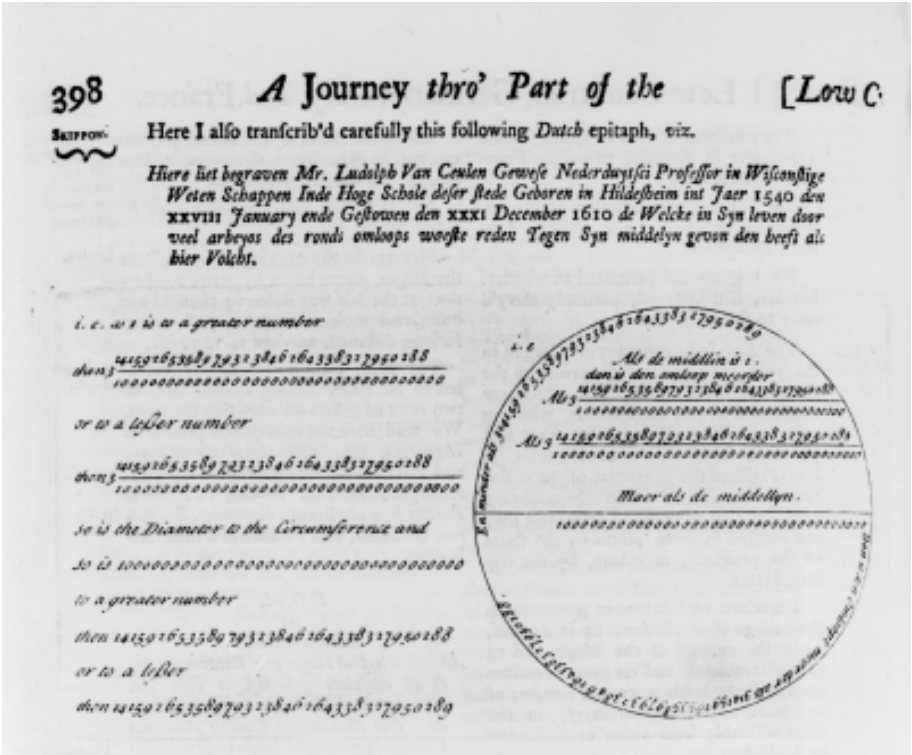 398 A Journey thro' Part of the [Low C.
SKIPPON.
Here I also transcrib'd carefully this following Dutch epitaph, viz.
Hiere liet begraven Mr. Ludolph Van Ceulen Gewese Nederduytsci Professor in Wisconstige
Weten Schappen Inde Hoge Schole deser stede Geboren in Hildesheim int Jaer 1540 den
XXVIII January ende Gestowen den XXXI December 1610 de Welcke in Syn leven door
veel arbeyos des ronds omloops waeste reden Tegen Syn middelyn gevon den heeft als
hier Volcht.
i. e. as 1 is to a greater number
then 3 14159265358979323846264338327950288
100000000000000000000000000000000000
or to a lesser number
then 3 14159265358979323846264338327950288
100000000000000000000000000000000000
so is the Diameter to the Circumference and
so is 100000000000000000000000000000000000
to a greater number
then 14159265358979323846264338327950288
or to a lesser
then 14159265358979323846264338327950289
En minder als 314159265358979323846264338327950289
Als de middlin is 1.
dan is den omloop meerder
Als 3 14159265358979323846264338327950288
100000000000000000000000000000000000
Als 3 14159265358979323846264338327950289
100000000000000000000000000000000000
Maer als de middellyn.
100000000000000000000000000000000000